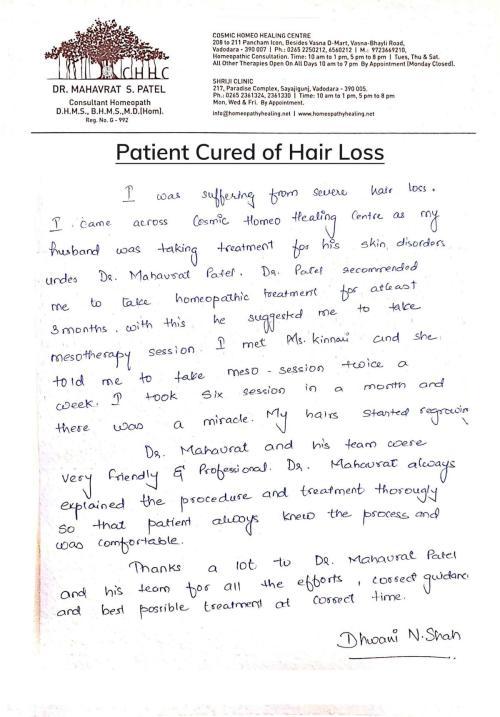 CHHC
DR. MAHAVRAT S. PATEL
Consultant Homeopath
D.H.M.S., B.H.M.S.,M.D.(Hom).
Reg. No. G - 992
COSMIC HOMEO HEALING CENTRE
208 to 211 Pancham Icon, Besides Vasna D-Mart, Vasna-Bhayli Road,
Vadodara - 390 007 | Ph.: 0265 2250212, 6560212 | M.: 9723669210,
Homeopathic Consultation. Time: 10 am to 1 pm, 5 pm to 8 pm | Tues, Thu & Sat.
All Other Therapies Open On All Days 10 am to 7 pm By Appointment (Monday Closed).
SHRIJI CLINIC
217, Paradise Complex, Sayajigunj, Vadodara - 390 005.
Ph.: 0265 2361324, 2361330 | Time: 10 am to 1 pm, 5 pm to 8 pm
Mon, Wed & Fri. By Appointment.
info@homeopathyhealing.net | www.homeopathyhealing.net
Patient Cured of Hair Loss
I was suffering from severe hair loss.
I came across Cosmic Homeo Healing Centre as my
husband was taking treatment for his skin disorders
under Dr. Mahavrat Patel. Dr. Patel recommended
me to take homeopathic treatment for atleast
3 months. with this he suggested me to take
mesotherapy session. I met Ms. Kinnari and she
told me to take meso-session twice a
week. I took six session in a month and
there was a miracle. My hairs started regrowin
Dr. Mahavrat and his team were
very friendly & Professional. Dr. Mahavrat always
explained the procedure and treatment thorougly
so that patient always knew the process and
was comfortable.
Thanks a lot to Dr. Mahavrat Patel
and his team for all the efforts, correct guidance
and best possible treatment at correct time.
Dhwani N. Shah